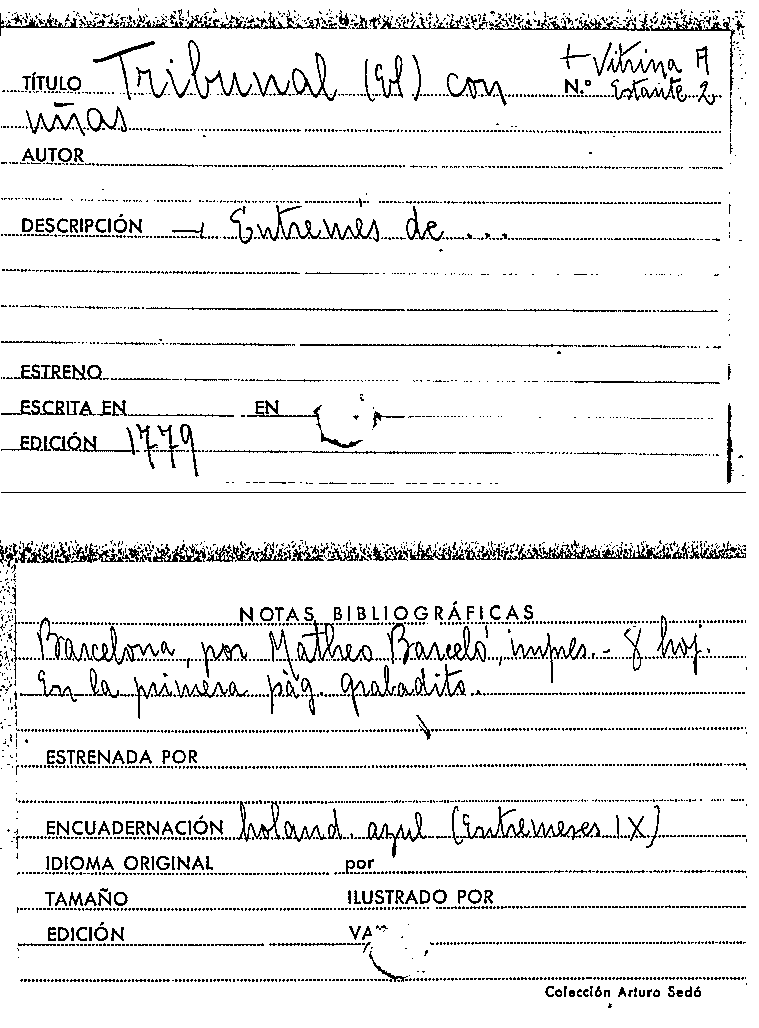 TÍTULO Tribunal (El) con
+ Vitrina A
N.º Estante 2
uñas
AUTOR
DESCRIPCIÓN → Entremés de ...
ESTRENO
ESCRITA EN EN
EDICIÓN 1779
NOTAS BIBLIOGRÁFICAS
Barcelona, por Matheo Barceló, impres.- 8 hoj.
En la primera pág. grabadito.
ESTRENADA POR
ENCUADERNACIÓN holand. azul (Entremeses IX)
IDIOMA ORIGINAL por
TAMAÑO ILUSTRADO POR
EDICIÓN
Colección Arturo Sedó